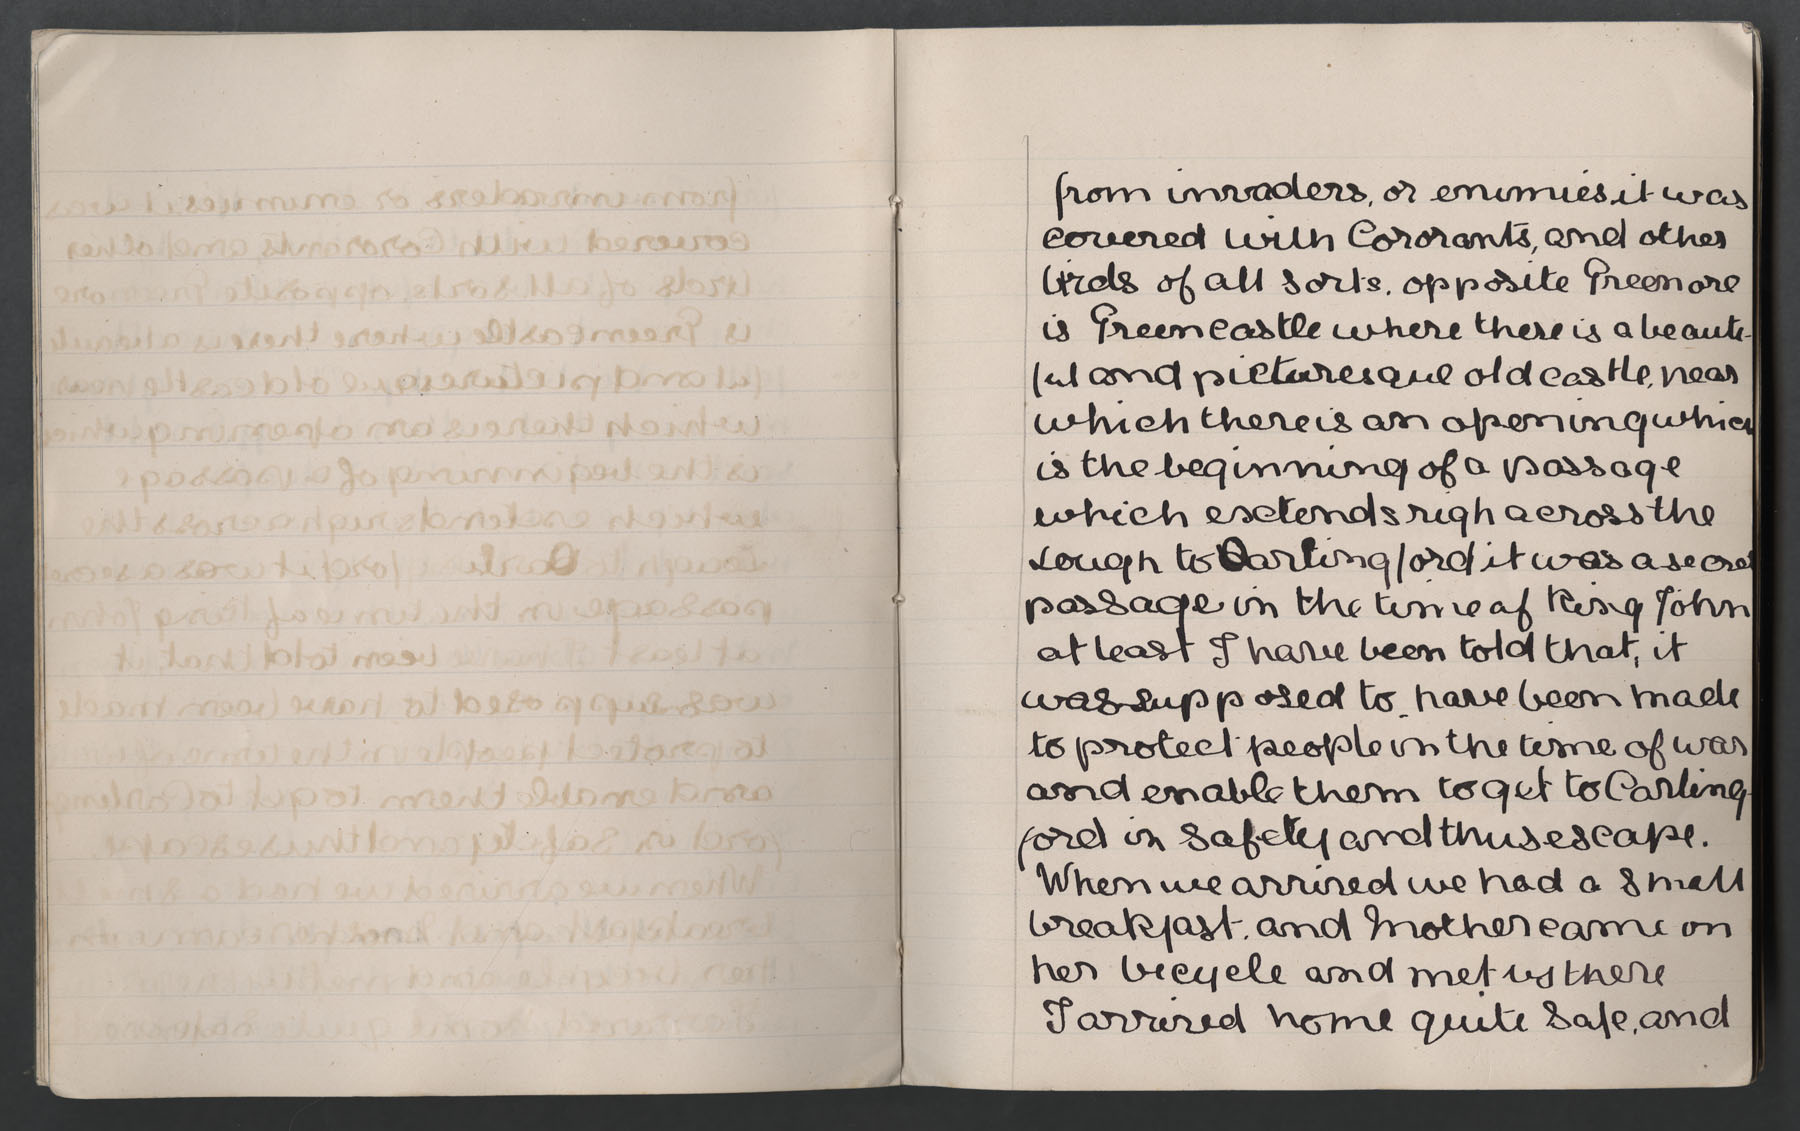 from invaders, or enimies, it was
covered with Cororants, and other
birds of all sorts. opposite Greenore
is Greencastle where there is a beauti-
ful and picturesque old castle, near
which there is an opening which
is the beginning of a passage
which exctends righ across the
Lough to Carlingford it was a secret
passage in the time of King John
at least I have been told that, it
was supposed to have been made
to protect people in the time of war
and enable them to get to Carling-
ford in safety and thus escape.
When we arrived we had a small
breakfast. and Mother came on
her bicycle and met us there
I arrived home quite safe, and